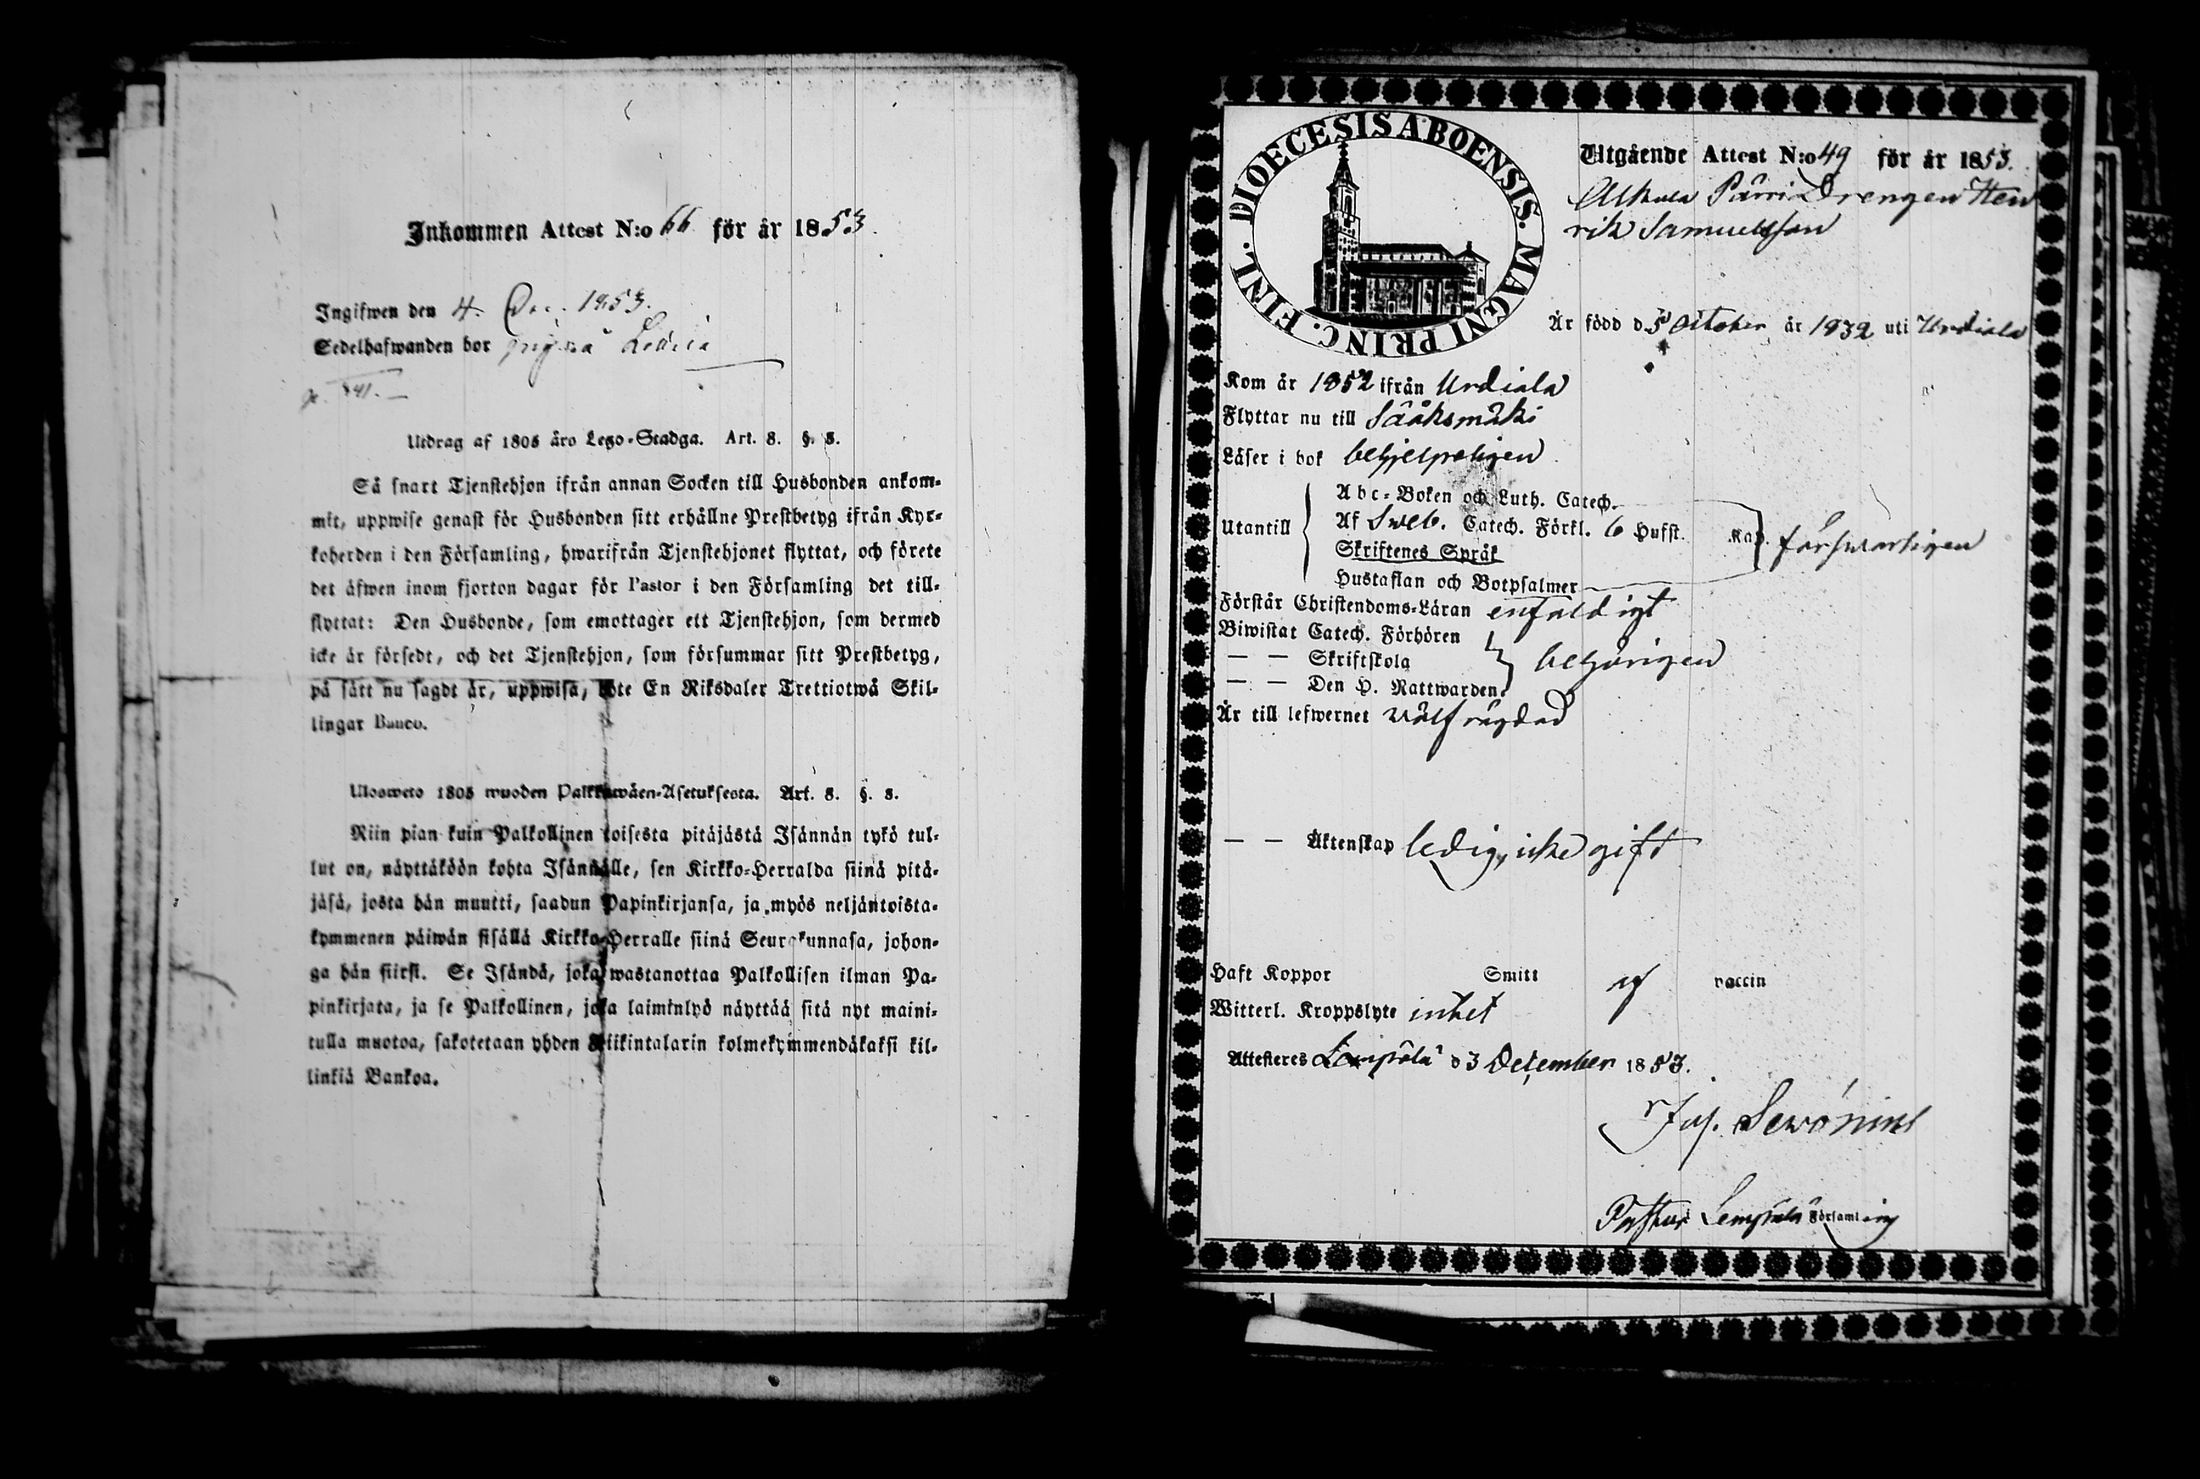 Inkommen Attest N:o 66 för år 1853.
Ingifwen den 4. Dec. 1853.
Sedelhafwanden bor
p. 541.
Utdrag af 1805 års Lego-Stadga. Art. 8. §. 8.
Så snart Tjenstehjon ifrån annan Socken till Husbonden ankom-
mit, uppwise genast för Husbonden sitt erhållne Prestbetyg ifrån Kyr-
koherden i den Församling, hwarifrån Tjenstehjonet flyttat, och förete
det äfwen inom fjorton dagar för Pastor i den Församling det till-
flyttat: Den Husbonde, som emottager ett Tjenstehjon, som dermed
icke är försedt, och det Tjenstehjon, som försummar sitt Prestbetyg,
på sätt nu sagdt är, uppwisa, böte En Riksdaler Trettiotwå Skil-
lingar Banco.
Ulosweto 1805 wuoden Palkkawäen-Asetuksesta. Art. 8. §. 8.
Niin pian kuin Palkollinen toisesta pitäjästä Isännän tykö tul-
lut on, näyttäköön kohta Isännälle, sen Kirkko-Herralda siinä pitä-
jäsä, josta hän muutti, saadun Papinkirjansa, ja myös neljäntoista-
kymmenen päiwän sisällä Kirkko-Herralle siinä Seurakunnasa, johon-
ga hän siirsi. Se Isändä, joka wastanottaa Palkollisen ilman Pa-
pinkirjata, ja se Palkollinen, joka laiminlyö näyttää sitä nyt maini-
tulla muotoa, sakotetaan yhden Riikintalarin kolmekymmendäkaksi kil-
linkiä Bankoa.
DIOECESIS ABOENSIS. MAGNI PRINC. FINL.
Utgående Attest N:o 49 för år 1853.
Drengen Hen
rik Samuelsson
Är född d. 5 October år 1832 uti Urdiala
Kom år 1852 ifrån Urdiala
Flyttar nu till Sääksmäki
Läser i bok behjelpeligen
Utantill
Abc-Boken och Luth. Catech.
Af Sveb. Catech. Förkl. 6 Hufst. Kap. försvarligen
Skriftenes Språk
Hustaflan och Botpsalmer
Förstår Christendoms-Läran enfaldigt
Biwistat Catech. Förhören
— — Skriftskola behörigen
— — Den H. Nattwarden
Är till lefwernet välfrägdad
— — Äktenskap ledig, icke gift
Haft Koppor Smitt af vaccin
Witterl. Kroppslyte intet
Attesteras Lempälä d 3 December 1853.
Pastor Lempälä Församling